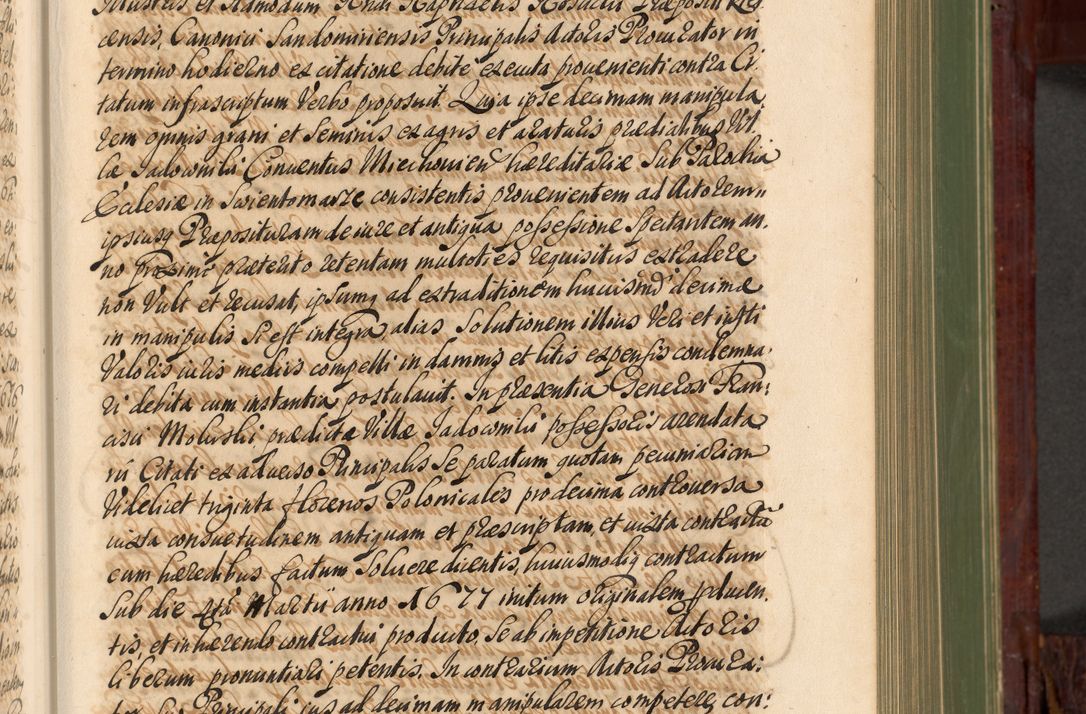 Illustris et Admodum Rndi Raphaelis Præpositi
censis, Canonici Sandomiriensis Principalis Actoris Procurator in
termino hodierno ex citatione debite executa provenienti contra Ci
tatum infrascriptum Verbo proposuit. Quia ipse decimam manipula
rem omnis grani et Seminis ex agris et araturis prædialibus Vil
læ Jadowniki Conventus Miechovien hæreditariæ Sub Parochia
Ecclesiæ in Swientomarze consistentis provenientem ad Actorem
ipsiusq Præposituram de iure et antiqua possessione Spectantem an.
no proxime præterito retentam multoties requisitus extradere
non Vult et recusat, ipsumq ad extraditionem huiusmdi decimæ
in manipulis si est integra, alias Solutionem illius Veri et iusti
Valoris iuris mediis compelli in damnis et litis expensis condemna.
ri debita cum instantia postulavit. In præsentia Generosi Fran:
cisci Molurski prædictæ Villæ Jadowniki possessoris arendata
rii Citati ex adverso Principalis Se paratum quotam pecuniariam
Videlicet triginta florenos Polonicales pro decima controversa
iuxta consuetudinem antiquam et præscriptam, et iuxta contractū
cum hæredibus factum Soluere dicentis, huiusmodiq contractum
Sub die 4ta Martii anno 1677 initum originalem produen.
tis, et inhærendo contractui producto, Se ab impetitione Actoris
liberum pronuntiari petentis. In contrarium Actoris Procura:
tor Suo Principali ius ad decimam manipularem competere, con: